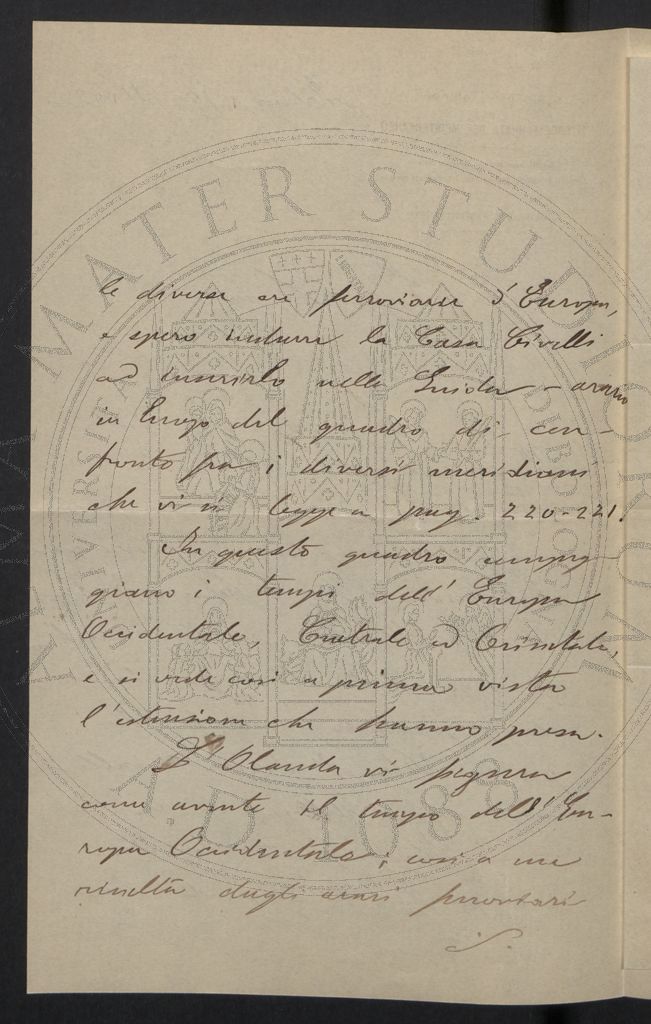 le diverse ore ferroviarie d'Europa,
e spero indurre la Casa Civelli
ad inserirlo nella Guida-orario
in luogo del quadro di con-
fronto fra i diversi meridiani
che vi si legge a pag. 220-221.
In questo quadro campeg-
giano i tempi dell'Europa
Occidentale, Centrale ed Orientale,
e si vede così a prima vista
l'estensione che hanno presa.
L'Olanda vi figura
come avente il tempo dell'Eu-
ropa Occidentale; così a me
risulta dagli orari ferroviari
ALMA MATER STUDIORUM
A.D. 1088